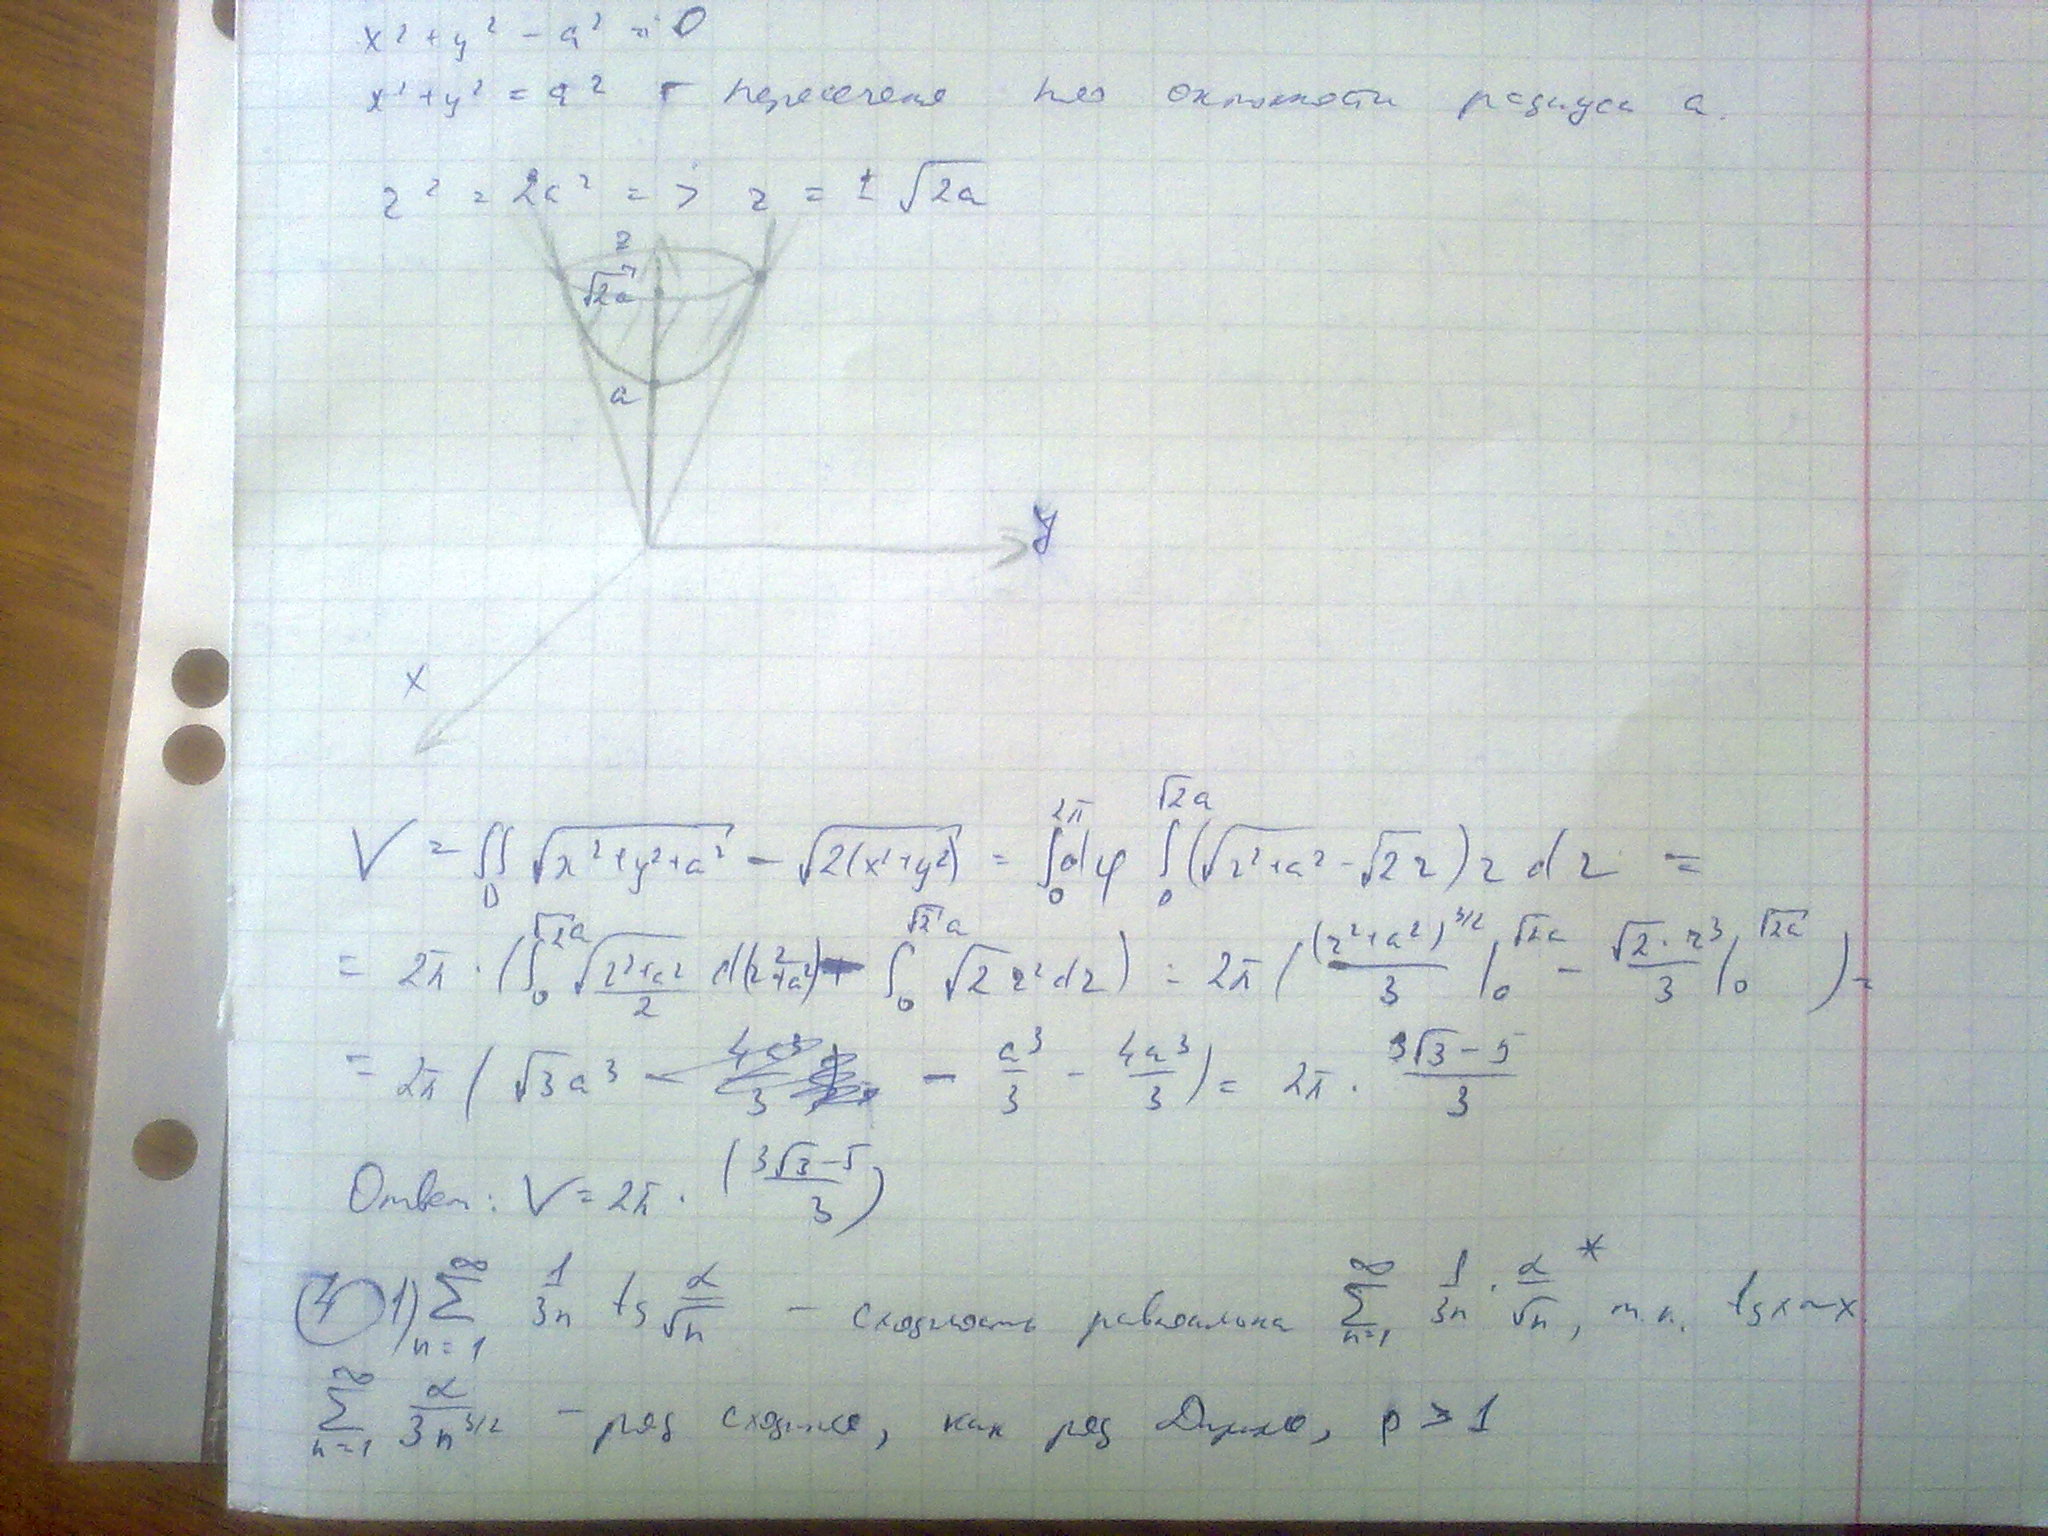 x² + y² - a² = 0
x² + y² = a² - пересечение по окружности радиуса a.
z² = 2a² => z = ± √2a
z
√2a
a
y
x
V = ∬_D √(x²+y²+a²) - √(2(x²+y²)) = ∫_0^{2π} dφ ∫_0^{√2a} (√(r²+a²) - √2 r) r dr =
= 2π · (∫_0^{√2a} √(r²+a²)/2 d(r²+a²) - ∫_0^{√2a} √2 r² dr) = 2π ((r²+a²)^{3/2}/3 |_0^{√2a} - √2·r³/3 |_0^{√2a}) =
= 2π (√3a³ - a³/3 - 4a³/3) = 2π · (3√3-5)/3
Ответ: V = 2π · ((3√3-5)/3)
4 1) ∑_{n=1}^∞ 1/3n tg α/√n - сходимость равносильна ∑_{n=1}^∞ 1/3n · α/√n *, т.к. tgx~x
∑_{n=1}^∞ α/3n^{3/2} - ряд сходится, как ряд Дирихле, p > 1